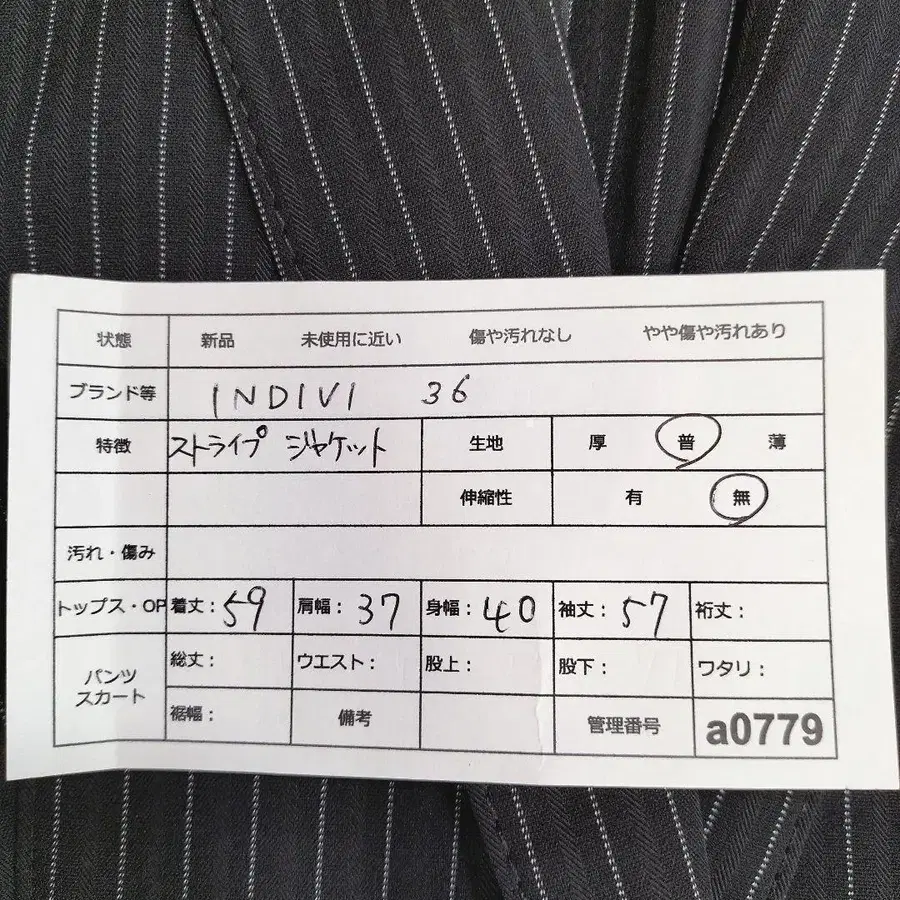 状態 新品 未使用に近い 傷や汚れなし やや傷や汚れあり
ブランド等 INDIVI 36
特徴 ストライプ ジャケット 生地 厚 普 薄
伸縮性 有 無
汚れ・傷み
トップス・OP 着丈：59 肩幅：37 身幅：40 袖丈：57 裄丈：
パンツ スカート 総丈： ウエスト： 股上： 股下： ワタリ：
裾幅： 備考 管理番号 a0779